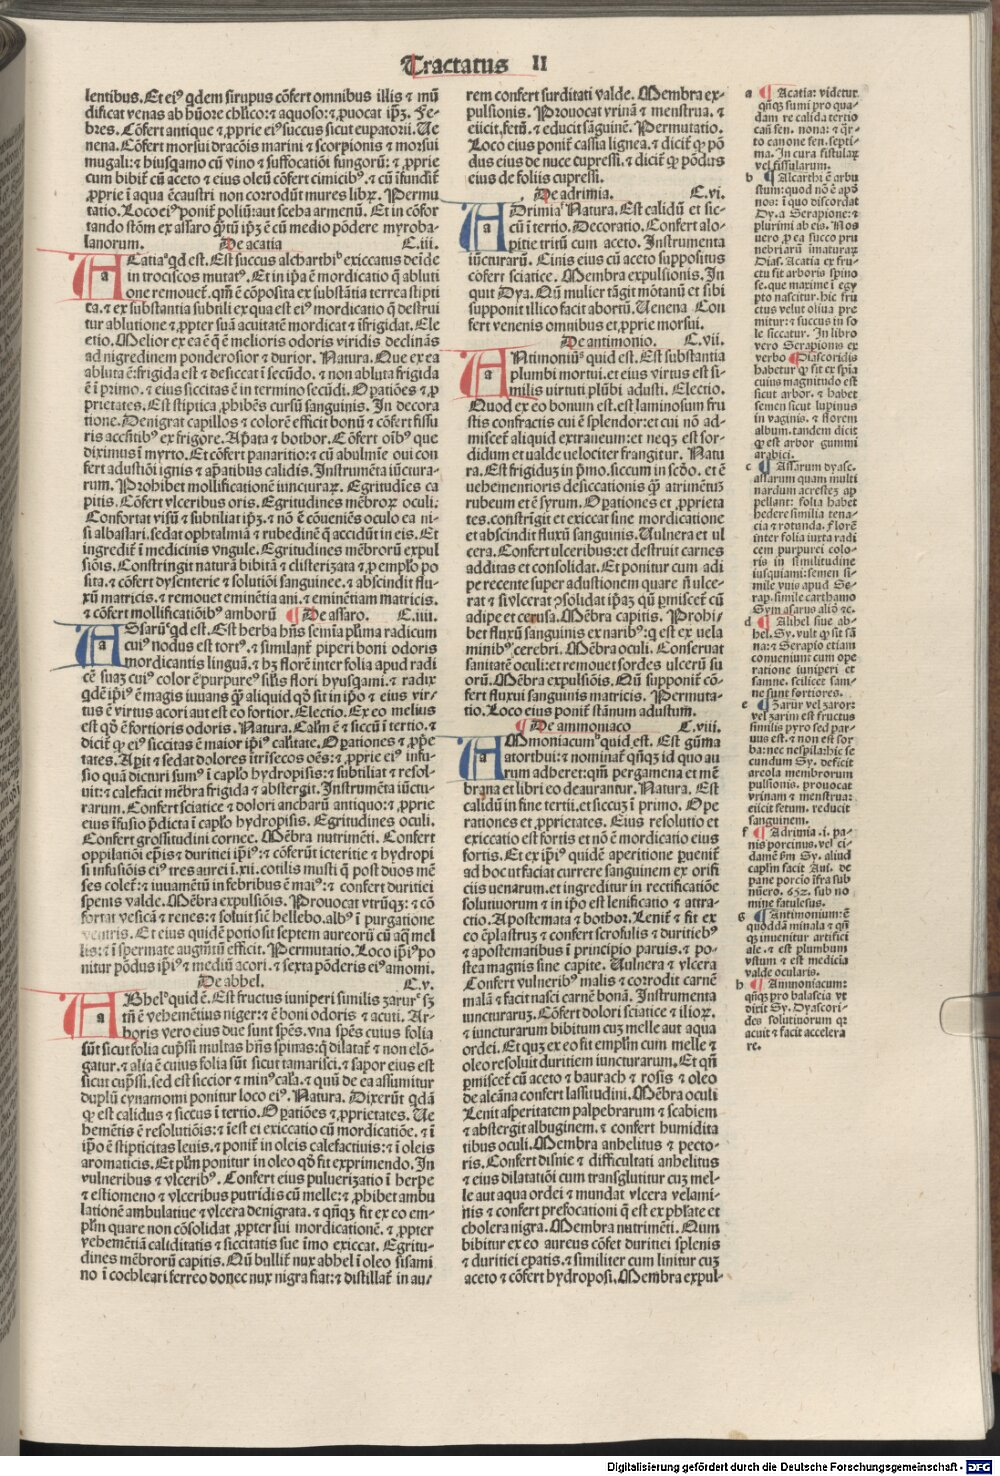 Tractatus II
lentibus. Et eiꝰ qdem sirupus cōfert omnibus illis ⁊ mū
dificat venas ab hūore chlico: ⁊ aquoso: ⁊ ꝓuocat ip̄ȝ. Fe-
bres. Cōfert antique ⁊ ꝓprie eiꝰ succus sicut eupatorii. Ve
nena. Cōfert morsui dracōis marini ⁊ scorpionis ⁊ morsui
mugali: ⁊ hiusqamo cū vino ⁊ suffocatiōi fungorū: ⁊ ꝓprie
cum bibit̄ cū aceto ⁊ eius oleū cōfert cimicibꝰ. ⁊ cū īfundit̄
ꝓprie ī aqua ēcaustri non corrodūt mures libꝝ. Permu
tatio. Loco eiꝰ ponit̄ poliū: aut sceba armenū. Et in cōfor
tando stōm ex assaro q̄tū ip̄ȝ ē cū medio pōdere myroba-
lanorum. De acatia C.iii.
ACatiaꝰ qd est. Est succus alcharthibꝰ exiccatus deīde
in trociscos mutatꝰ. Et in ip̄a ē mordicatio q̄ abluti
one remouet̄. qm̄ ē cōposita ex substātia terrea stipti
ca. ⁊ ex substantia subtili ex qua est eiꝰ mordicatio q̄ destrui
tur ablutione ⁊ ꝓpter suā acuitatē mordicat ⁊ īfrigidat. Ele
ctio. Melior ex ea ē q̄ ē melioris odoris viridis declināS
ad nigredinem ponderosior ⁊ durior. Natura. Que ex ea
abluta ē: frigida est ⁊ desiccat ī secūdo. ⁊ non abluta frigida
ē ī primo. ⁊ eius siccitas ē in termino secūdi. Opatiōes ⁊ ꝓ
prietates. Est stiptica ꝓhibēs cursū sanguinis. In decora
tione. Denigrat capillos ⁊ colorē efficit bonū ⁊ cōfert fissu
ris accn̄tibꝰ ex frigore. Ap̄ata ⁊ bothor. Cōfert oībꝰ que
diximus ī myrto. Et cōfert panaritio: ⁊ cū albumīe oui con
fert adustiōi ignis ⁊ ap̄atibus calidis. Instrumēta iūctura-
rum. Prohibet mollificationē iuncturaꝝ. Egritudīes ca
pitis. Cōfert vlceribus oris. Egritudines mēbroꝝ oculi:
Confortat visū ⁊ subtiliat ip̄ȝ. ⁊ nō ē cōueniēs oculo ea ni-
si albassari. sedat ophtalmiā ⁊ rubedinē q̄ accidūt in eis. Et
ingredit̄ ī medicinis vngule. Egritudines mēbrorū expul
siōis. Constringit naturā bibita ⁊ clisterizata ⁊ ꝓ emplro po
sita. ⁊ cōfert dysenterie ⁊ solutiōi sanguinee. ⁊ abscindit flu-
xū matricis. ⁊ remouet eminētia ani. ⁊ eminētiam matricis.
⁊ cōfert mollificatiōibꝰ amborū ¶ De assaro. C.iiii.
ASsarūꝰ qd est. Est herba hn̄s semīa plīma radicum
cuiꝰ nodus est tortꝰ. ⁊ similant̄ piperi boni odoris
mordicantis linguā. ⁊ hȝ florē inter folia apud radi
cē suaȝ cuiꝰ color ē purpureꝰ siĺis flori hyusqami. ⁊ radix
qdē ip̄iꝰ ē magis iuuans q̄ȝ aliquid qd̄ sit in ip̄o ⁊ eius vir-
tus ē virtus acori aut est eo fortior. Electio. Ex eo melius
est qd̄ ē fortioris odoris. Natura. Calm̄ ē ⁊ siccū ī tertio. ⁊
dicit̄ ꝙ eiꝰ siccitas ē maior ip̄iꝰ caĺitate. Opationes ⁊ ꝓp̄e
tates. Apit ⁊ sedat dolores ītrīsecos oēs: ⁊ ꝓprie eiꝰ infu-
sio quā dicturi sumꝰ ī caplo hydropisis: ⁊ subtiliat ⁊ resol-
uit: ⁊ calefacit mēbra frigida ⁊ abstergit. Instrumēta iūctu-
rarum. Confert sciatice ⁊ dolori ancharū antiquo: ⁊ ꝓprie
eius īfusio p̄dicta ī caplo hydropisis. Egritudines oculi.
Confert grossitudini cornee. Mēbra nutrimēti. Confert
oppilatiōi ep̄tis ⁊ duritiei ip̄iꝰ: ⁊ cōferūt icteritie ⁊ hydropi
si infusiōis eiꝰ tres aurei ī .xii. cotilis musti q̄ post duos mē
ses colet̄: ⁊ iuuamētū in febribus ē maiꝰ: ⁊ confert duritiei
splenis valde. Mēbra expulsiōis. Prouocat vtrūqȝ: ⁊ cō
fortat vesicā ⁊ renes: ⁊ soluit sic̄ hellebo. albꝰ ī purgatione
ventris. Et eius quidē potio sit septem aureorū cū aq̄ mel
lis: ⁊ ī spermate augmētū efficit. Permutatio. Loco ip̄iꝰ po
nitur pōdus ip̄iꝰ ⁊ mediū acori. ⁊ sexta pōderis eiꝰ amomi.
De abbel. C.v.
ABhelꝰ quid ē. Est fructus iuniperi similis zarur̄ sȝ
tn̄ ē vehemētius niger: ⁊ ē boni odoris ⁊ acuti. Ar-
boris vero eius due sunt spēs. vna spēs cuius folia
sūt sicut folia cup̄ssi multas hn̄s spinas: q̄ dilatat̄ ⁊ non elō-
gatur. ⁊ alia ē cuius folia sūt sicut tamarisci. ⁊ sapor eius est
sicut cup̄ssi. sed est siccior ⁊ minꝰ caĺa. ⁊ quū de ea assumitur
duplū cynamomi ponitur loco eiꝰ. Natura. Dixerūt qdā
ꝙ est calidus ⁊ siccus ī tertio. Opatiōes ⁊ ꝓprietates. Ve
hemētis ē resolutiōis: ⁊ īest ei exiccatio cū mordicatiōe. ⁊ ī
ip̄o ē stipticitas leuis. ⁊ ponit̄ in oleis calefactiuis: ⁊ ī oleis
aromaticis. Et plm̄ ponitur in oleo qd̄ fit exprimendo. In
vulneribus ⁊ vlceribꝰ. Confert eius puluerizatio ī herpe
⁊ estiomeno ⁊ vlceribus putridis cū melle: ⁊ ꝓhibet ambu
lationē ambulatiue ⁊ vlcera denigrata. ⁊ qn̄qȝ fit ex eo em-
plm̄ quare non cōsolidat ꝓpter sui mordicationē. ⁊ ꝓpter
vehemētiā caliditatis ⁊ siccitatis sue īmo exiccat. Egritu-
dines mēbrorū capitis. Qn̄ bullit̄ nux abhel ī oleo sisami
no ī cochleari ferreo donec nux nigra fiat: ⁊ distillat̄ in au/
rem confert surditati valde. Membra ex-
pulsionis. Prouocat vrinā ⁊ menstrua. ⁊
eiicit fetū. ⁊ educit sāguinē. Permutatio.
Loco eius ponit̄ cassia lignea. ⁊ dicit̄ ꝙ pō
dus eius de nuce cupressi. ⁊ dicit̄ ꝙ pōdus
eius de foliis cupressi.
De adrimia. C.vi.
ADrimiaꝰ Natura. Est calidū ⁊ sic-
cū ī tertio. Decoratio. Confert alo-
pitie tritū cum aceto. Instrumenta
iūcturarū. Cinis eius cū aceto suppositus
cōfert sciatice. Membra expulsionis. In
quit Dya. Qn̄ mulier tāgit motanū et sibi
supponit illico facit abortū. Venena Con
fert venenis omnibus et ꝓprie morsui.
De antimonio. C.vii.
ANtimoniūꝰ quid est. Est substantia
plumbi mortui. et eius virtus est si-
milis virtuti plūbi adusti. Electio.
Quod ex eo bonum est. est laminosum fru
stis confractis cui ē splendor: et cui nō ad-
miscet̄ aliquid extraneum: et neqȝ est sor-
didum et valde velociter frangitur. Natu
ra. Est frigiduȝ in p̄mo. siccum in scdo. et ē
vehementioris desiccationis q̄ȝ atrimētuȝ
rubeum et ē syrum. Opationes et ꝓprieta
tes. constrīgit et exiccat sine mordicatione
et abscindit fluxū sanguinis. Vulnera et ul
cera. Confert ulceribus: et destruit carnes
additas et consolidat. Et ponitur cum adi
pe recente super adustionem quare n̄ ulce-
rat ⁊ si vlcerat ꝯsolidat ip̄aȝ qn̄ ꝑmiscet̄ cū
adipe et cerusa. Mēbra capitis. Prohi-
bet fluxū sanguinis ex naribꝰ: q̄ est ex uela
minibꝰ cerebri. Mēbra oculi. Conseruat
sanitatē oculi: et remouet sordes ulcerū su
orū. Mēbra expulsiōis. Qn̄ supponit̄ cō-
fert fluxui sanguinis matricis. Permuta-
tio. Loco eius ponit̄ stānum adustum.
¶ De ammoniaco C.viii.
AMmoniacumꝰ quid est. Est gūma
atorthui: ⁊ nominat̄ qn̄qȝ id quo au
rum adheret: qm̄ pergamena et mē
brana et libri eo deaurantur. Natura. Est
calidū in fine tertii. et siccuȝ ī primo. Ope
rationes et ꝓprietates. Eius resolutio et
exiccatio est fortis et nō ē mordicatio eius
fortis. Et ex ip̄iꝰ quidē aperitione puenit̄
ad hoc ut faciat currere sanguinem ex orifi
ciis uenarum. et ingreditur in rectificatiōe
solutiuorum ⁊ in ip̄o est lenificatio ⁊ attra-
ctio. Apostemata ⁊ bothor. Lenit̄ ⁊ fit ex
eo ēplastruȝ ⁊ confert scrofulis ⁊ duritiebꝰ
⁊ apostematibus ī principio paruis. ⁊ po-
stea magnis sine capite. Vulnera ⁊ vlcera
Confert vulneribꝰ malis ⁊ corrodit carnē
malā ⁊ facit nasci carnē bonā. Instrumenta
iuncturaruȝ. Cōfert dolori sciatice ⁊ ilioꝝ.
⁊ iuncturarum bibitum cuȝ melle aut aqua
ordei. Et quȝ ex eo fit emplm̄ cum melle ⁊
oleo resoluit duritiem iuncturarum. Et qn̄
ꝑmiscet̄ cū aceto ⁊ baurach ⁊ rosis ⁊ oleo
de alcāna confert lassitudini. Mēbra oculi
Lenit asperitatem palpebrarum ⁊ scabiem
⁊ abstergit albuginem. ⁊ confert humidita
tibus oculi. Membra anhelitus ⁊ pecto-
ris. Confert disnie ⁊ difficultati anhelitus
⁊ eius dilatatiōi cum transglutitur cuȝ mel-
le aut aqua ordei ⁊ mundat vlcera velami-
nis ⁊ confert prefocationi q̄ est ex phlate et
cholera nigra. Membra nutrimēti. Qum
bibitur ex eo aureus cōfet duritiei splenis
⁊ duritiei epatis. ⁊ similiter cum linitur cuȝ
aceto ⁊ cōfert hydroposi. Membra expul-
a ¶ Acatia: videtur
qn̄qȝ sumi pro qua-
dam re calida tertio
cān̄ fen. nona: ⁊ qr̄-
to canone fen. septi-
ma. In cura fistulaꝝ
vel fissularum.
b ¶ Alcarthi ē arbu
stum: quod nō ē apō
nos: ī quo discordat
Dya. a Serapione: ⁊
plurimi ab eis. Nos
uero ꝓ ea succo pru
nebriarū īmaturaꝝ
Dias. Acatia ex fru-
ctu fit arboris spino
se. que maxime ī egy
pto nascitur. hic fru
ctus velut oliua pre
mitur: ⁊ succus in so
le siccatur. In libro
vero Serapionis ex
verbo ¶ Diascoridis
habetur ꝙ fit ex spīa
cuius magnitudo est
sicut arbor. ⁊ habet
semen sicut lupinus
in vaginis. ⁊ florem
album. tandem dicit
ꝙ est arbor gummi
arabici.
c ¶ Assarum dyasc.
assarum quam multi
nardum acrestes ap
pellant: folia habet
hedere similia tena-
cia ⁊ rotunda. florē
inter folia iuxta radi
cem purpurei colo-
ris in similitudine
iusquiami: semen si-
mile vuis apud Se-
rap. simile carthamo
Sym asarus aliō ⁊c.
d ¶ Alihel siue ab-
hel. Sy. vult ꝙ sit sa
na: ⁊ Serapio etiam
conueniunt cum ope
ratione iuniperi et
samne. scilicet sam-
ne sunt fortiores.
e ¶ Zarur vel zaror:
vel zarim est fructus
similis pyro sed par-
uus est. ⁊ non est for
ba: nec nespila: hic se
cundum Sy. deficit
areola membrorum
pulsionis. prouocat
vrinam ⁊ menstrua:
eiicit fetum. reducit
sanguinem.
f ¶ Adrimia .i. pa-
nis porcinus. vel ci-
damē sm̄ Sy. aliud
caplm̄ facit Aui. de
pane porcio īfra sub
nūero. 652. sub no
mine fatulesus.
g ¶ Antimonium: ē
quoddā minala ⁊ qn̄
qȝ inuenitur artifici
ale. ⁊ est plumbum
vstum ⁊ est medicia
valde ocularis.
h ¶ Ammoniacum:
qn̄qȝ pro balaseia vt
dixit Sy. Dyascori-
des solutiuorum qꝛ
acuit ⁊ facit accelera
re.
Digitalisierung gefördert durch die Deutsche Forschungsgemeinschaft - DFG